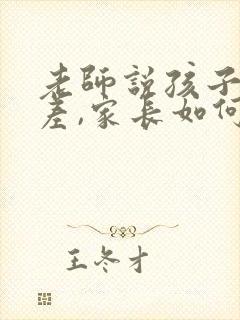 老師說孩子
差,家長如何
王冬才